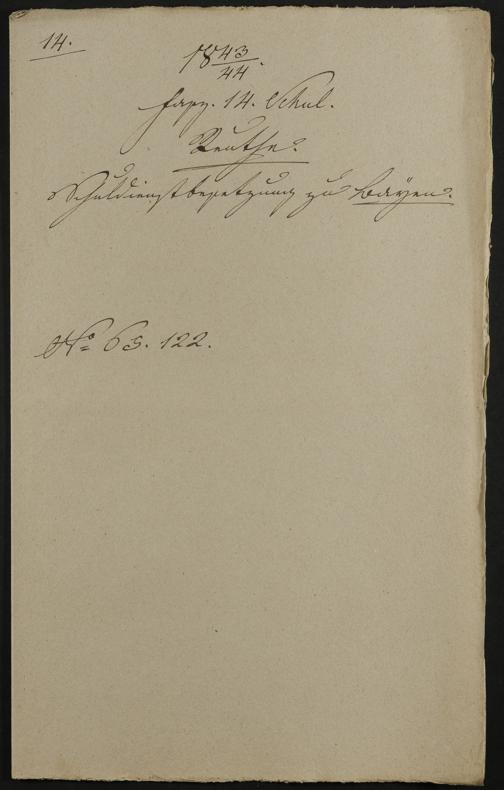 14.
18 43/44.
Fasz. 14. Schul.
Reuthe.
Schuldienstbesetzung zu
No 63. 122.